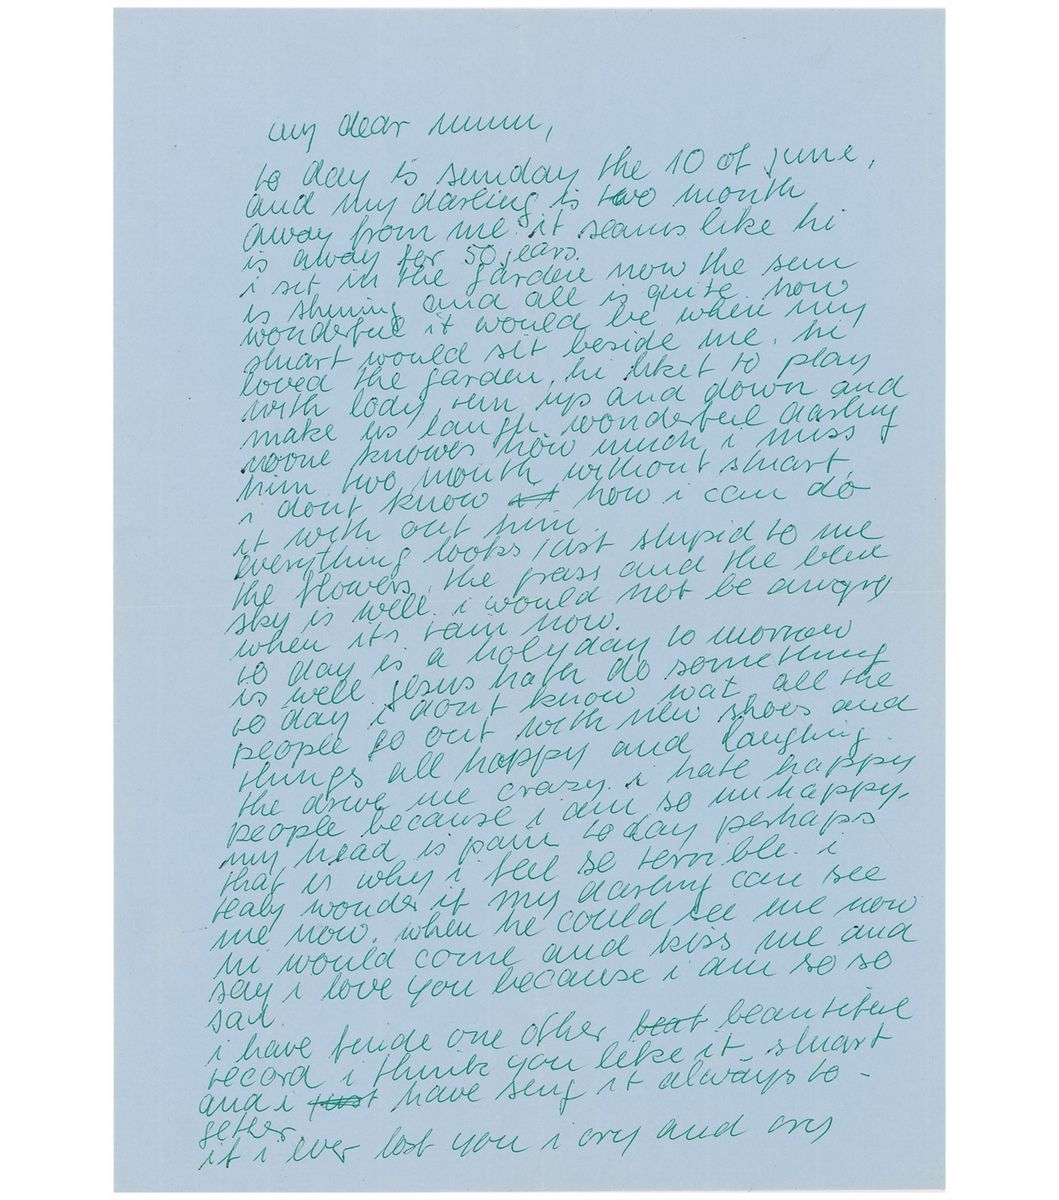 my dear mum,
to day is sunday the 10 of june,
and my darling is two month
away from me. it seams like hi
is away for 50 years.
i sit in the garden now the sun
is shining and all is quite. how
wonderful it would be when my
stuart would sit beside me. hi
loved the garden, hi liket to play
with lody, run up and down and
make us laugh wonderful darling
noone knowes how much i miss
him two month without stuart,
i dont know how i can do
it with out him.
everything looks just stupid to me
the flowers, the grass and the blue
sky is well. i would not be angry
when its rain now.
to day is a holyday to morrow
is well jesus hath do something
to day i dont know wat all the
people go out with new shoes and
things all happy and laughing.
the drive me crazy. i hate happy
people because i am so unhappy.
my head is pain to day perhaps
that is why i feel so terrible. i
realy wonder if my darling can see
me now. when he could see me now
hi would come and kiss me and
say i love you because i am so so
sad.
i have finde one other beautiful
record i think you like it. stuart
and i have sing it always to-
gether.
if i ever lost you i cry and cry